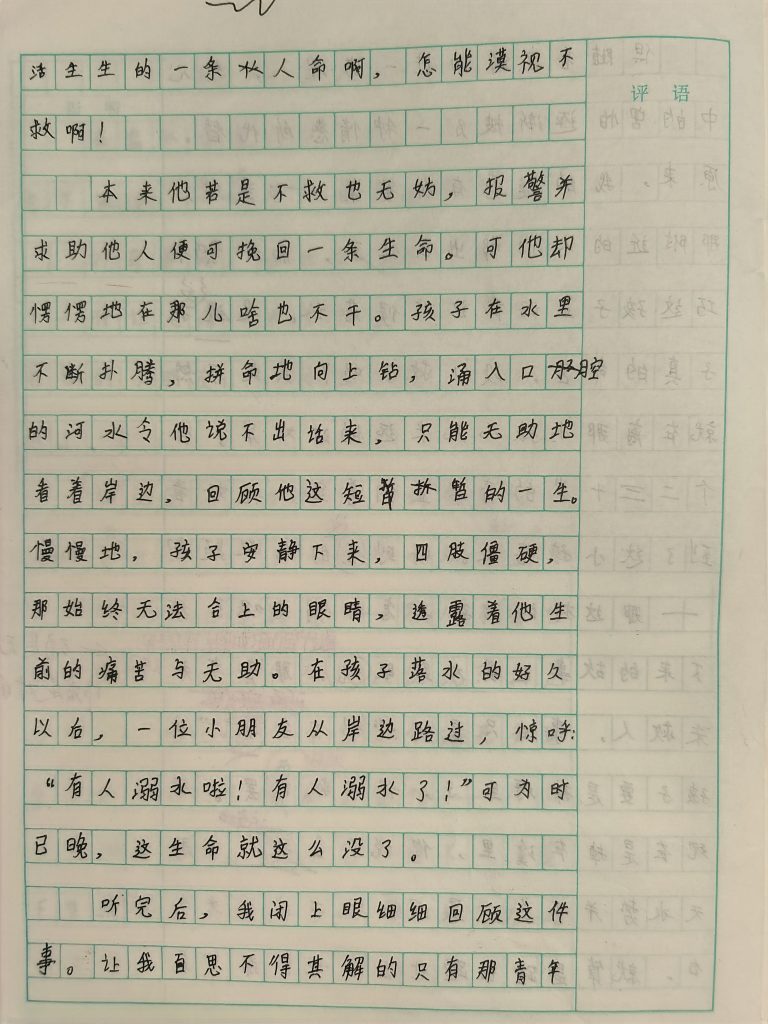 活生生的一条人命啊，怎能漠视不
评 语
救啊！
本来他若是不救也无妨，报警并
求助他人便可挽回一条生命。可他却
愣愣地在那儿啥也不干。孩子在水里
不断扑腾，拼命地向上钻，涌入口腔
的河水令他说不出话来，只能无助地
看着岸边，回顾他这短暂的一生。
慢慢地，孩子安静下来，四肢僵硬，
那始终无法合上的眼睛，透露着他生
前的痛苦与无助。在孩子落水的好久
以后，一位小朋友从岸边路过，惊呼：
“有人溺水啦！有人溺水了！”可为时
已晚，这生命就这么没了。
听完后，我闭上眼细细回顾这件
事。让我百思不得其解的只有那青年